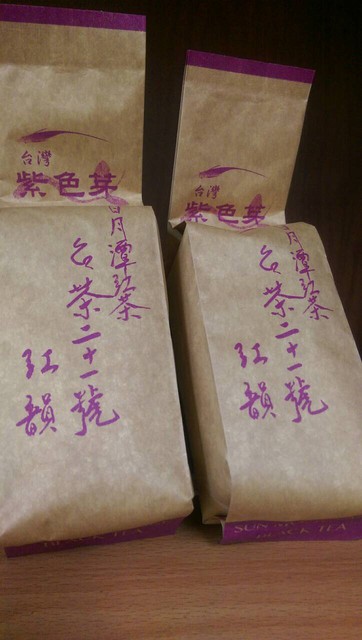 台灣
紫色芽
日月潭紅茶
台茶二十一號
紅韻
台灣
紫色芽
日月潭紅茶
台茶二十一號
紅韻
BLACK TEA
SUN
BLACK TEA